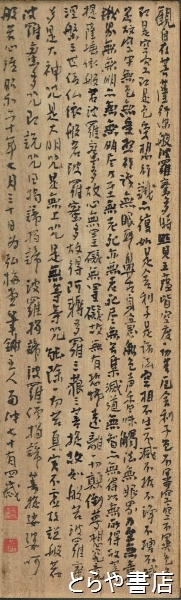 觀自在菩薩行深般若波羅蜜多時照見五蘊皆空度一切苦厄舍利子色不異空空不異色色
即是空空即是色受想行識亦復如是舍利子是諸法空相不生不滅不垢不淨不增不減
是故空中無色無受想行識無眼耳鼻舌身意無色聲香味觸法無眼界乃至無意識界
無無明亦無無明盡乃至無老死亦無老死盡無苦集滅道無智亦無得以無所得故菩
提薩埵依般若波羅蜜多故心無罣礙無罣礙故無有恐怖遠離一切顛倒夢想究竟
涅槃三世諸仏依般若波羅蜜多故得阿耨多羅三藐三菩提故知般若波羅蜜
多是大神咒是大明咒是無上咒是無等等咒能除一切苦真實不虛故說般若
波羅蜜多咒即說咒曰揭諦揭諦波羅揭諦波羅僧揭諦菩提娑婆呵
般若心經昭和六十年七月三十日為主人七十有四歲
とらや書店